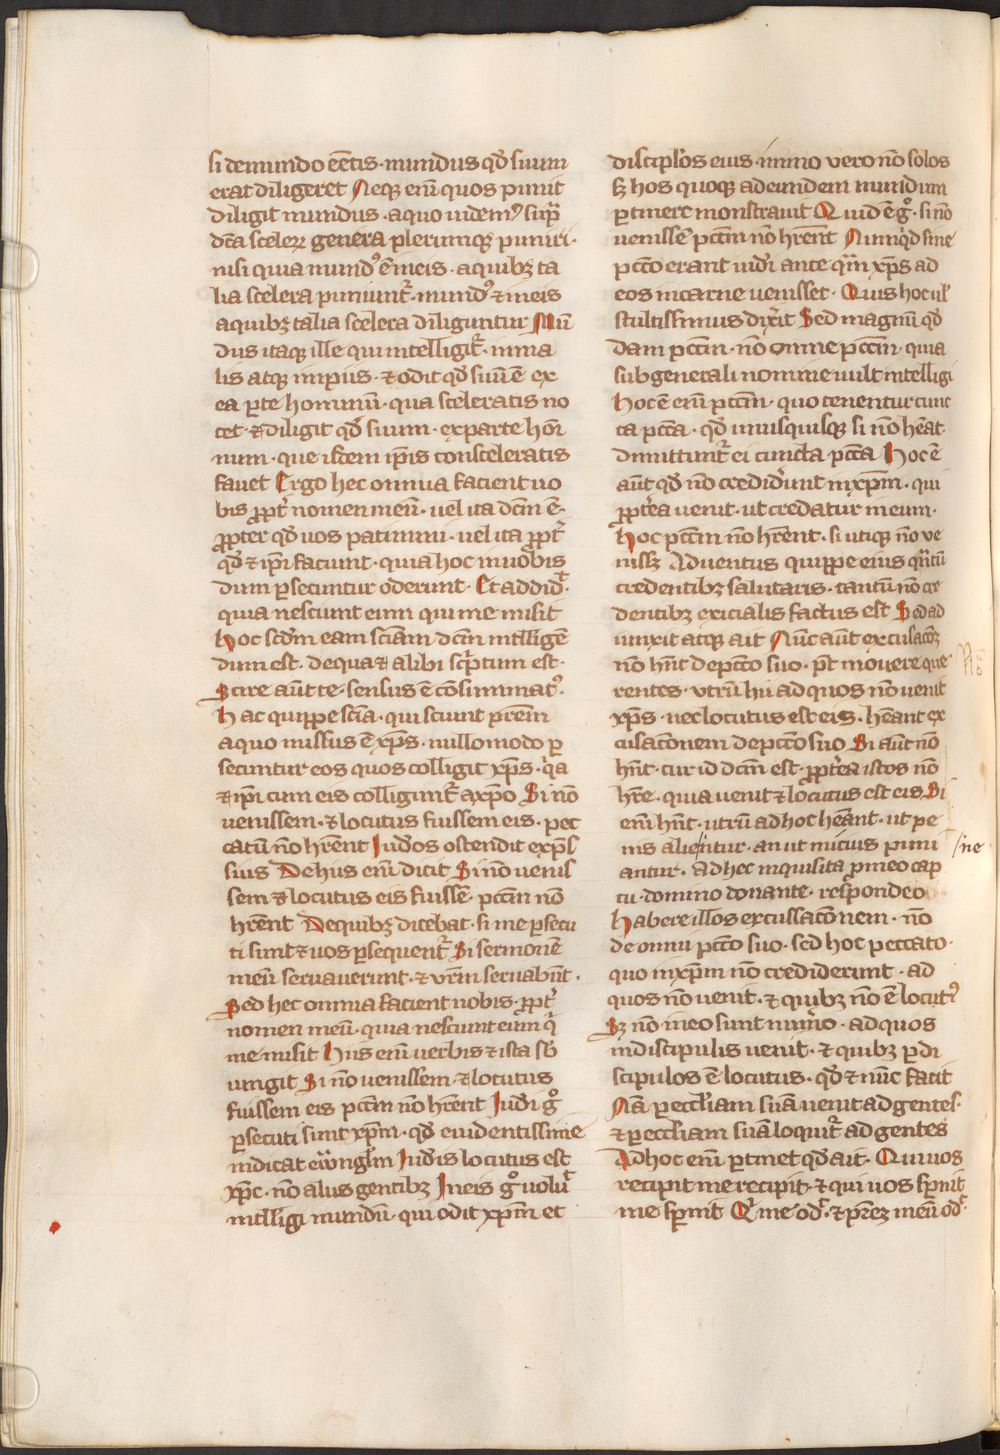 si de mundo eētis · mundus qđ suum
erat diligeret Neqꝫ enī quos punit
diligit mundus · a quo uidemꝰ sup̄
dc̄a scelerꝝ genera plerumqꝫ puniri ·
nisi quia mundꝰ ē in eis · a quibꝫ ta
lia scelera puniunt᷑ · mundꝰ ⁊ in eis
a quibꝫ talia scelera diliguntur Mū
dus itaqꝫ ille qui intelligit᷑ · in ma
lis atqꝫ impiis · ⁊ odit qđ suū ē ex
ea ꝑte hominū · qua sceleratis no
cet · ⁊ diligit qđ suum · ex parte hōi
num · que isdem ip̄is consceleratis
fauet Ergo hec omnia facient uo
bis ꝓpt᷑ nomen meū · uel ita dc̄m ē ·
ꝓpter qđ uos patimini · uel ita ꝓpt᷑
qđ ⁊ ip̄i faciunt · quia hoc in uobis
dum ꝑsecuntur oderunt · Et addid᷑ ·
quia nesciunt eum qui me misit
Hoc scđm eam sciām dc̄m intelligē
dum est · de qua ⁊ alibi sc͛ptum est ·
Scire aūt te · sensus ē cōsummatꝰ ·
Hac quippe scīa · qui sciunt prēm
a quo missus ē xp̄s · nullo modo ꝑ
secuntur eos quos colligit xp̄s · q͛a
⁊ ip̄i cum eis colligunt᷑ a xp̄o Si nō
uenissem · ⁊ locutus fuissem eis · pec
catū nō hr̄ent Iudōs ostendit exp̄ss
suis De hiis enī dicit Si nō uenis
sem ⁊ locutus eis fuissē · pcc̄m nō
hr̄ent De quibꝫ dicebat · si me ꝑsecu
ti sunt ⁊ uos ꝑsequent᷑ Si sermonē
meū seruauerunt · ⁊ vr̄m seruabūt ·
Sed hec omnia facient uobis · ꝓpt᷑
nomen meū · quia nesciunt eum q͛
me misit Hiis enī uerbis ⁊ ista sb̄
iungit Si nō uenissem · ⁊ locutus
fuissem eis pcc̄m nō hr̄ent Iudēi gͦ
ꝑsecuti sunt xp̄m · qđ euidentissime
indicat euuāngl̄m Iudēis locutus est
xp̄c · nō aliis gentibꝫ In eis gͦ uolu᷑
intelligi mundū · qui odit xp̄m et
discipl̄os eius · immo vero nō solos
sꝫ hos quoqꝫ ad eundem mundum
ꝑtinere monstrauit Quid ē gͦ · si nō
uenissē pcc̄m nō hr̄ent Numq͛d sine
pcc̄o erant iudēi ante q̄m xp̄s ad
eos in carne uenisset · Quis hoc uł
stultissimus dix͛it Sed magnū qđ
dam pcc̄m · nō omne pcc̄m · quia
sub generali nomine uult intelligi
Hoc ē enī pcc̄m · quo tenentur cunc
ta pcc̄a · qđ unusquisqꝫ si nō hēat
dimittunt᷑ ei cuncta pcc̄a Hoc ē
aūt qđ nō credid͛unt in xp̄m · qui
ꝓpt͛ea uenit · ut credatur in eum ·
Hoc pcc̄m nō hr̄ent · si utiqꝫ nō ve
nissꝫ Aduentus quippe eius q̄ntū
credentibꝫ salutaris · tantū nō cre
dentibꝫ exicialis factus est Sed ad
iunxit atqꝫ ait Nūc aūt excusac̄oꝫ
nō hn̄t de pcc̄o suo · pt̄ mouere que
rentes · vtrū hii ad quos nō uenit
xp̄s · nec locutus est eis · hēant ex
cusac̄onem de pcc̄o suo Si aūt nō
hn̄t · cur id dc̄m est · ꝓpt͛ea istos nō
hr̄e · quia uenit ⁊ locutus est eis Si
enī hn̄t · utrū ad hoc hēant · ut pe
nis alientur · an ut mitius puni /ne
antur · Ad hec inquisita ꝓ meo cap
tu · domino donante · respondeo
Habere illos excussac̄onem · nō
de omni pcc̄o suo · sed hoc peccato ·
quo in xp̄m nō crediderunt · ad
quos nō uenit · ⁊ quibꝫ nō ē locutꝰ
Sꝫ nō in eo sunt num͛o · ad quos
in discipulis uenit · ⁊ quibꝫ ꝑ di
scipulos ē locutus · qđ ⁊ nūc facit
Nā ꝑ eccl̄iam suā uenit ad gentes ·
⁊ ꝑ eccl̄iam suā loquit᷑ ad gentes
Ad hoc enī ꝑtinet qđ ait · Qui uos
recipit me recipit · ⁊ qui uos sp̄nit
me sp̄nit Q͛ me od᷑ · ⁊ pr̄eꝫ meū od᷑ ·